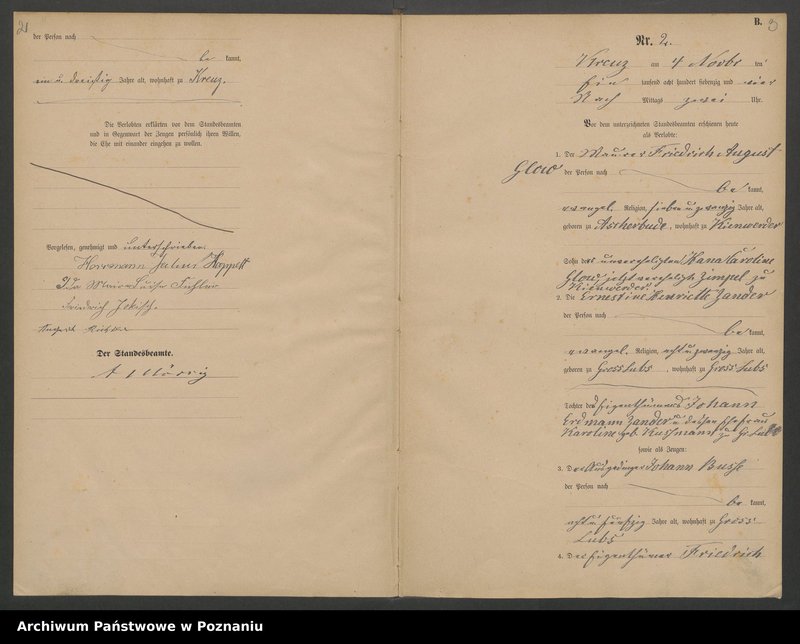 2
der Person nach
be kannt,
ein u. dreißig Jahre alt, wohnhaft zu Kreuz.
Die Verlobten erklärten vor dem Standesbeamten
und in Gegenwart der Zeugen persönlich ihren Willen,
die Ehe mit einander eingehen zu wollen.
Vorgelesen, genehmigt und unterschrieben:
Herrmann Julius
Ida
Friedrich
Der Standesbeamte.
B. 3
Nr. 2.
Kreuz am 4 Novbr ten
Ein tausend acht hundert siebenzig und vier
Nach Mittags zwei Uhr.
Vor dem unterzeichneten Standesbeamten erschienen heute
als Verlobte:
1. Der Maurer Friedrich August
Glow der Person nach
be kannt,
evangel. Religion, sieben u. zwanzig Jahre alt,
geboren zu Ascherbude, wohnhaft zu Kienwerder
Sohn der unverehelichten Hana Karoline
Glow jetzt verehelichte Zimpel zu
Kienwerder.
2. Die Ernestine Henriette Zander
der Person nach
be kannt,
evangel. Religion, acht u. zwanzig Jahre alt,
geboren zu Gross Lubs, wohnhaft zu Gross Lubs
Tochter des Eigenthümers Johann
Erdmann Zander u. dessen Ehefrau
Karoline geb. zu Gr. Lubs
sowie als Zeugen:
3. Der Ausgedinger Johann Busse
der Person nach
be kannt,
acht u. fünfzig Jahre alt, wohnhaft zu Gross
Lubs
4. Der Eigenthümer Friedrich
Archiwum Państwowe w Poznaniu